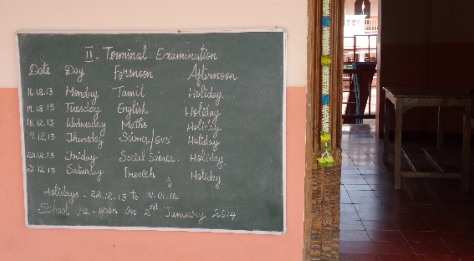 II. Terminal Examination
Date Day Forenoon Afternoon
16.12.13 Monday Tamil Holiday
17.12.13 Tuesday English Holiday
18.12.13 Wednesday Maths Holiday
19.12.13 Thursday Science/EVS Holiday
20.12.13 Friday Social Science Holiday
21.12.13 Saturday French Holiday
Holidays - 22.12.13 to
School re-open on 2nd January 2014